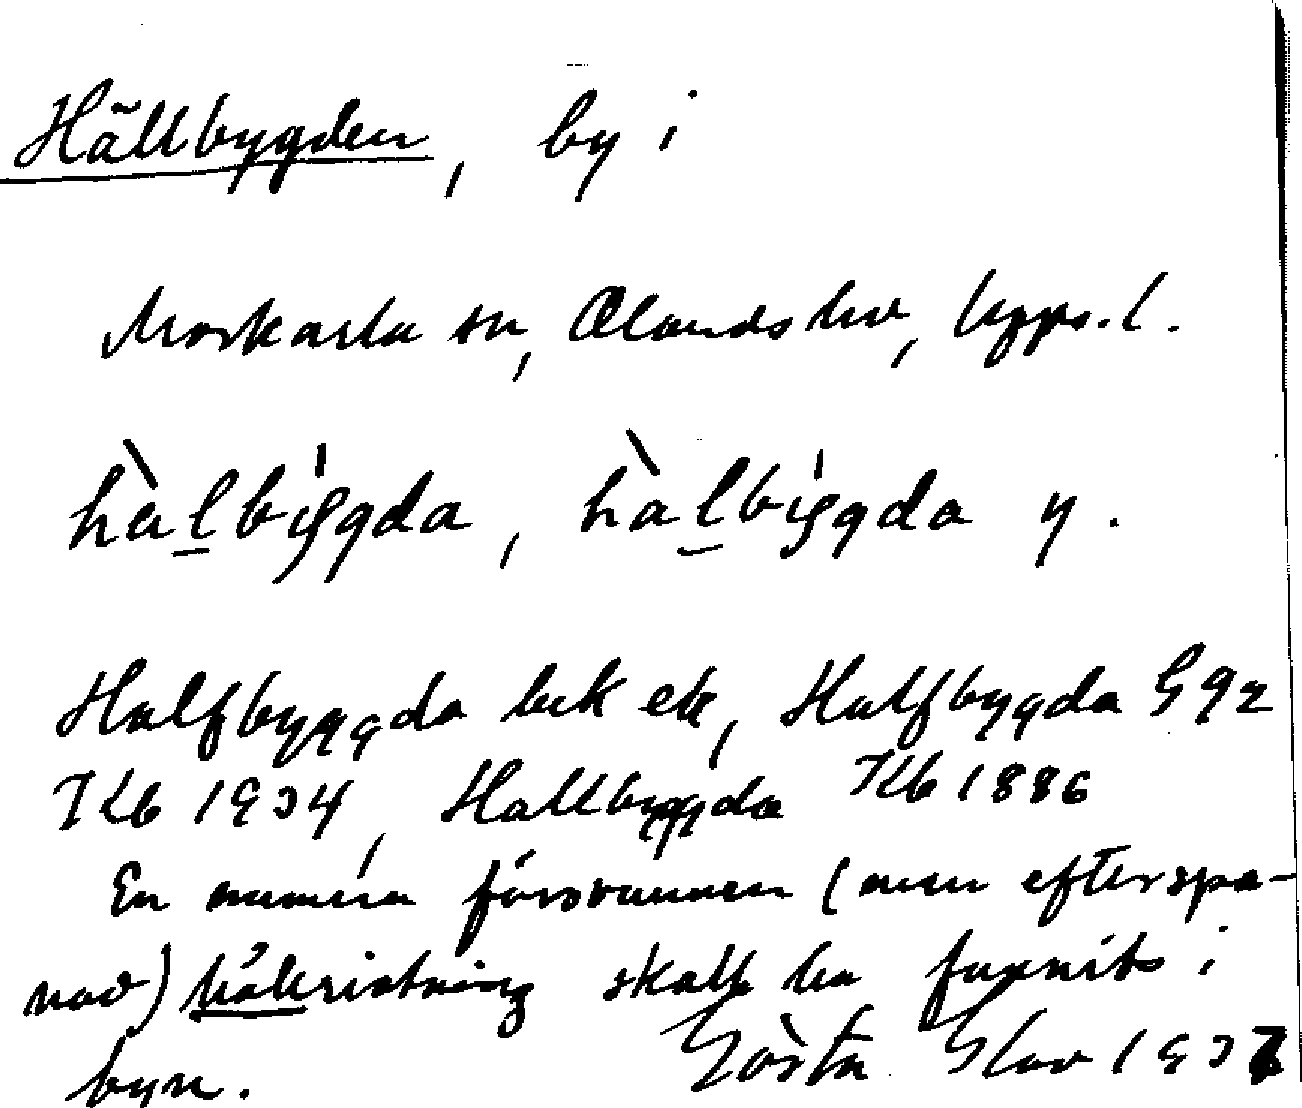 Hällbygden, by i
Morkarla sn, Olands hd, Upps. l.
hàlbýgda, hàlbýgda y.
Halfbyggda bek ek, Halfbygda Gqz
Kb 1934, Hallbygda Kb 1886
En numera försvunnen (men efterspa-
nad) hällristning skall ha funnits i
byn. Gösta